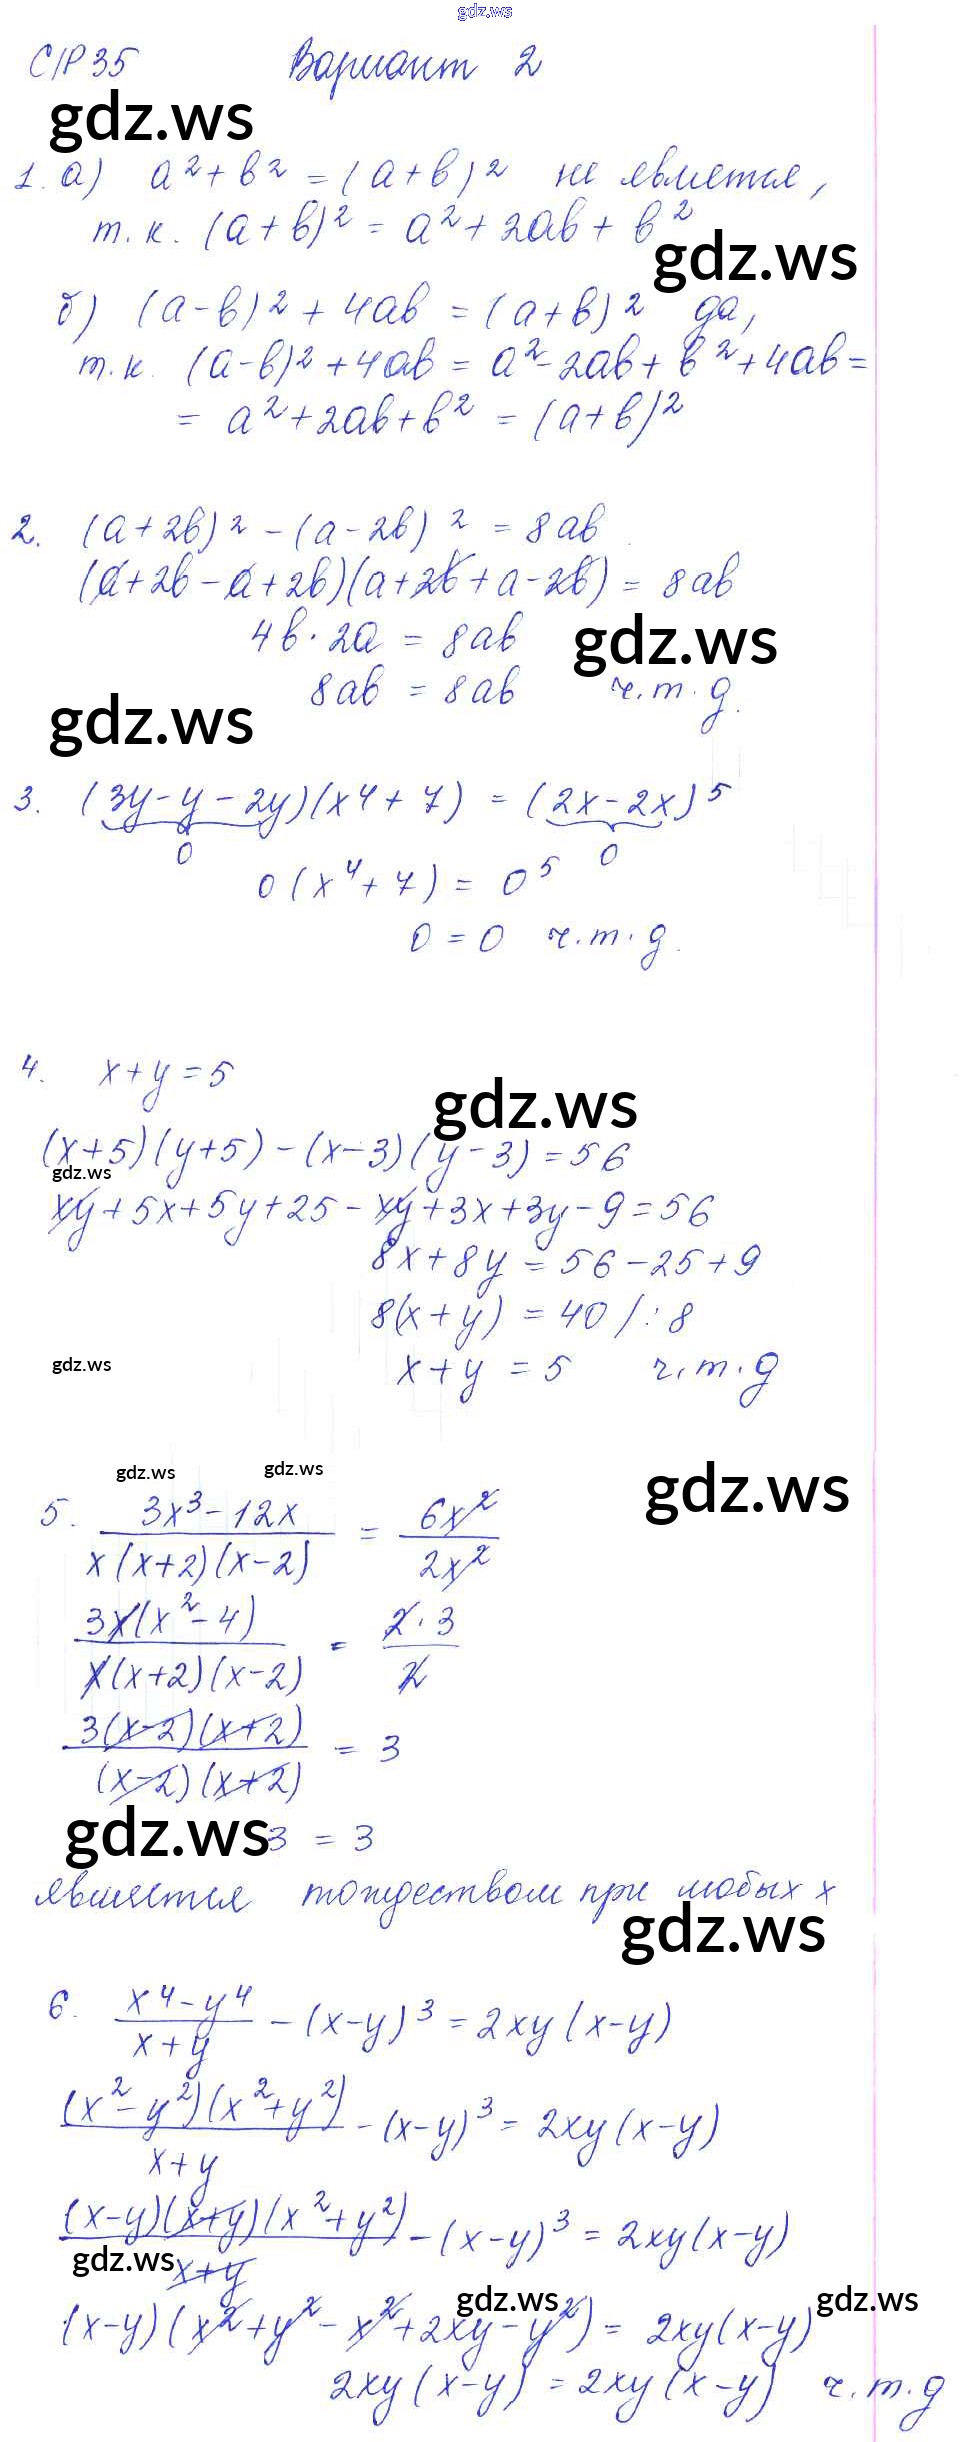 gdz.ws
С/Р 35 Вариант 2
gdz.ws
1. а) a² + b² = (a + b)² не является,
т.к. (a + b)² = a² + 2ab + b²
gdz.ws
б) (a - b)² + 4ab = (a + b)² да,
т.к. (a - b)² + 4ab = a² - 2ab + b² + 4ab =
= a² + 2ab + b² = (a + b)²
2. (a + 2b)² - (a - 2b)² = 8ab
(a + 2b - a + 2b)(a + 2b + a - 2b) = 8ab
4b · 2a = 8ab
gdz.ws
8ab = 8ab ч.т.д.
gdz.ws
3. (3y - y - 2y)(x⁴ + 7) = (2x - 2x)⁵
0 0
0(x⁴ + 7) = 0⁵
0 = 0 ч.т.д.
4. x + y = 5
gdz.ws
(x + 5)(y + 5) - (x - 3)(y - 3) = 56
gdz.ws
xy + 5x + 5y + 25 - xy + 3x + 3y - 9 = 56
8x + 8y = 56 - 25 + 9
8(x + y) = 40 / : 8
gdz.ws
x + y = 5 ч.т.д
gdz.ws gdz.ws
gdz.ws
5. 3x³ - 12x / x(x + 2)(x - 2) = 6x² / 2x²
3x(x² - 4) / x(x + 2)(x - 2) = 2 · 3 / 2
3(x - 2)(x + 2) / (x - 2)(x + 2) = 3
gdz.ws
3 = 3
является тождеством при любых x
gdz.ws
6. x⁴ - y⁴ / x + y - (x - y)³ = 2xy(x - y)
(x² - y²)(x² + y²) / x + y - (x - y)³ = 2xy(x - y)
(x - y)(x + y)(x² + y²) / x + y - (x - y)³ = 2xy(x - y)
gdz.ws
gdz.ws gdz.ws
(x - y)(x² + y² - x² + 2xy - y²) = 2xy(x - y)
2xy(x - y) = 2xy(x - y) ч.т.д